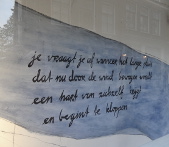 je vraagt je af wanneer het lange
dat nu door de wind bewogen wordt
een hart van zichzelf krijgt
en begint te kloppen